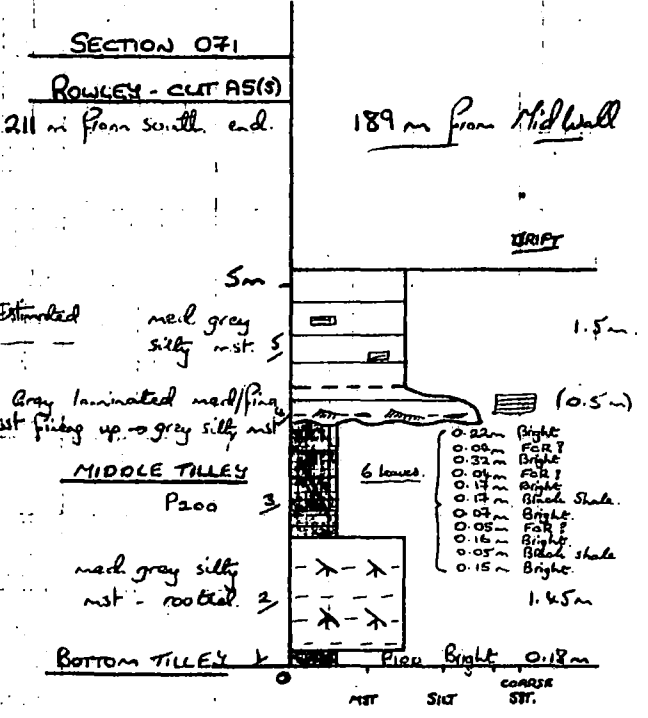 SECTION 071
ROWLEY - CUT A5(S)
211 m from south end.
189 m from Mid Wall
DRIFT
5m
Estimated
med grey
silty mst. 5
1.5m.
Grey laminated med/fine
sst fining up → grey silty mst
(0.5m)
MIDDLE TILLEY
P200 3
6 leaves.
0.22m Bright
Bright
Bright
0.17m Black Shale.
0.07m Bright.
0.05m
0.16m Bright.
0.05m Black shale
0.15m Bright.
med grey silty
mst - rooted. 2
1.45m
BOTTOM TILLEY 1
P100 Bright 0.18m
0
MST SILT COARSE
SST.